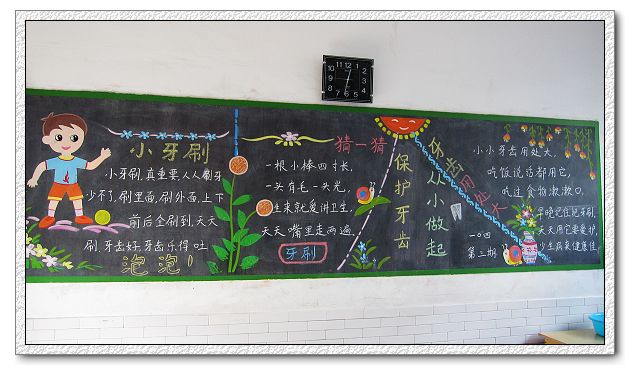 小牙刷
小牙刷,真重要,人人刷牙
少不了,刷里面,刷外面,上下
前后全刷到,天天
刷,牙齿好,牙齿乐得吐
泡泡!
猜一猜
一根小棒四寸长,
一头有毛一头光,
生来就爱讲卫生,
天天嘴里走两遍,
牙刷
保护牙齿
从小做起
牙齿用处大
一〇四
第三期
小小牙齿用处大,
吃饭说话都用它,
吃过食物漱漱口,
早晚记住把牙刷,
天天用它要爱护,
少生病来健康佳
12 11 10 9 8 7 6 5 4 3 2 1